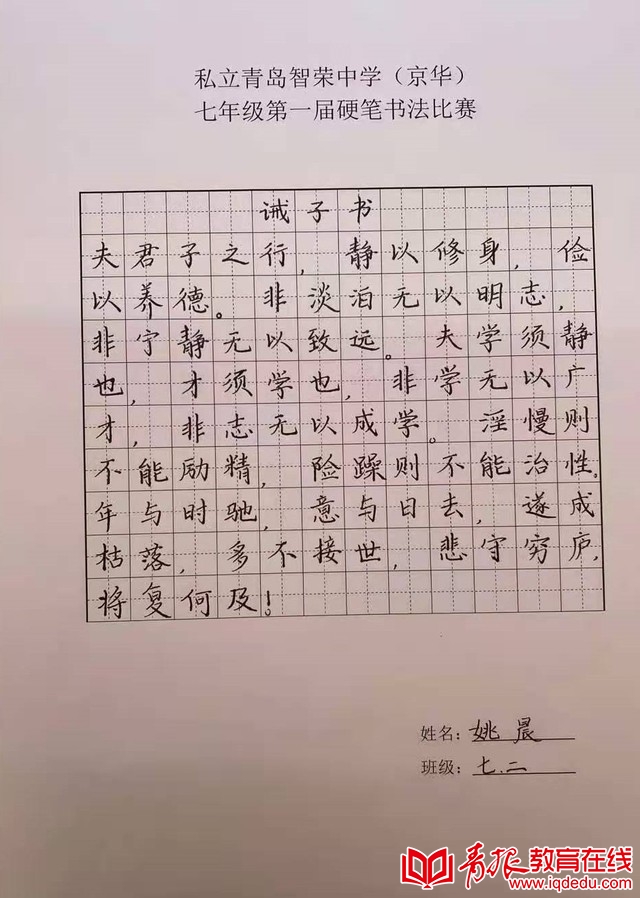 私立青岛智荣中学（京华）
七年级第一届硬笔书法比赛
诫子书
夫君子之行，静以修身，俭
以养德。非淡泊无以明志，
非宁静无以致远。夫学须静
也，才须学也，非学无以广
才，非志无以成学。淫慢则
不能励精，险躁则不能治性。
年与时驰，意与日去，遂成
枯落，多不接世，悲守穷庐，
将复何及！
姓名：姚晨
班级：七.二
青报教育在线
www.iqdedu.com